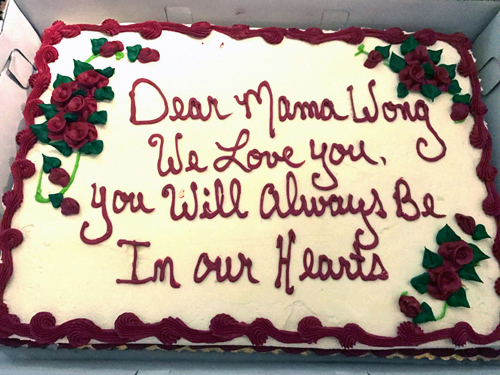 Dear Mama Wong
We Love you,
you Will Always Be
In our Hearts